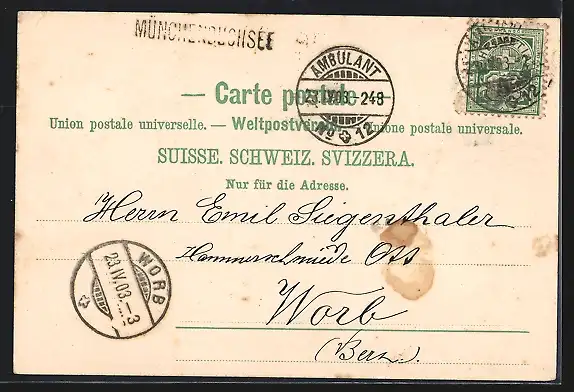 MÜNCHENBUCHSEE
AMBULANT
23.IV.03.-248
No 12
— Carte postale
Union postale universelle. — Weltpostverein. — Unione postale universale.
SUISSE. SCHWEIZ. SVIZZERA.
Nur für die Adresse.
Herrn Emil Siegenthaler
Hammerschmiede Ott
Worb
(Bern).
WORB
23.IV.03.-3